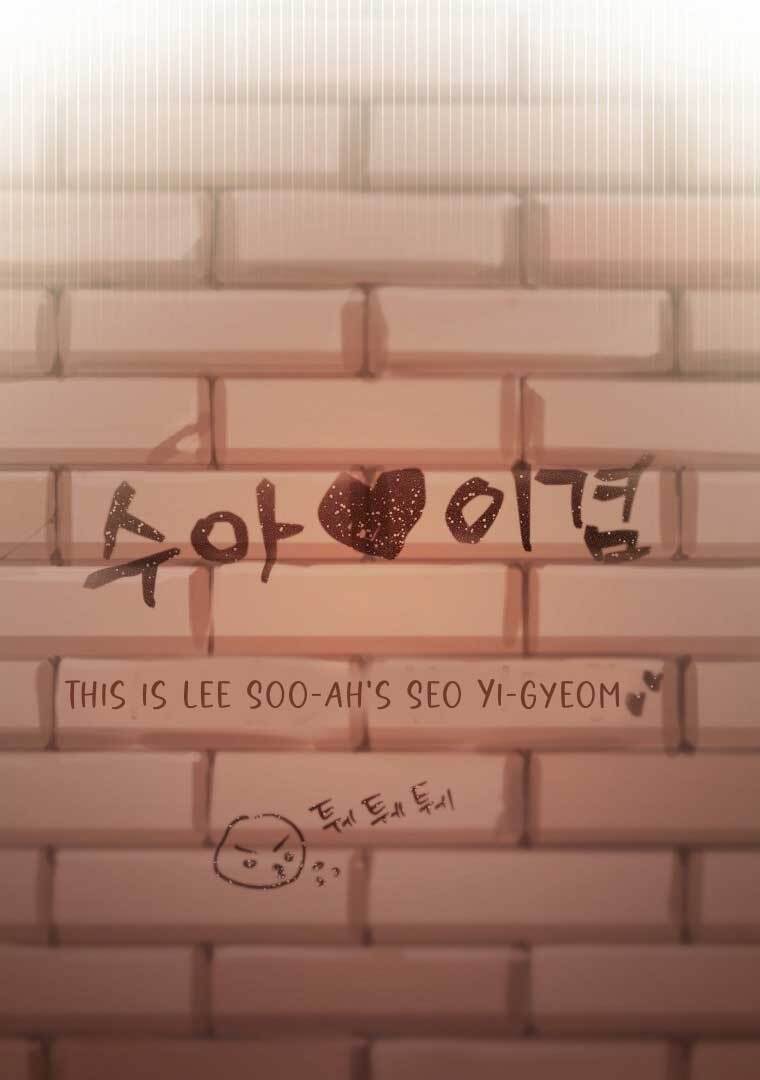 수아♥이겸
THIS IS LEE SOO-AH'S SEO YI-GYEOM
퉤 퉤 퉤